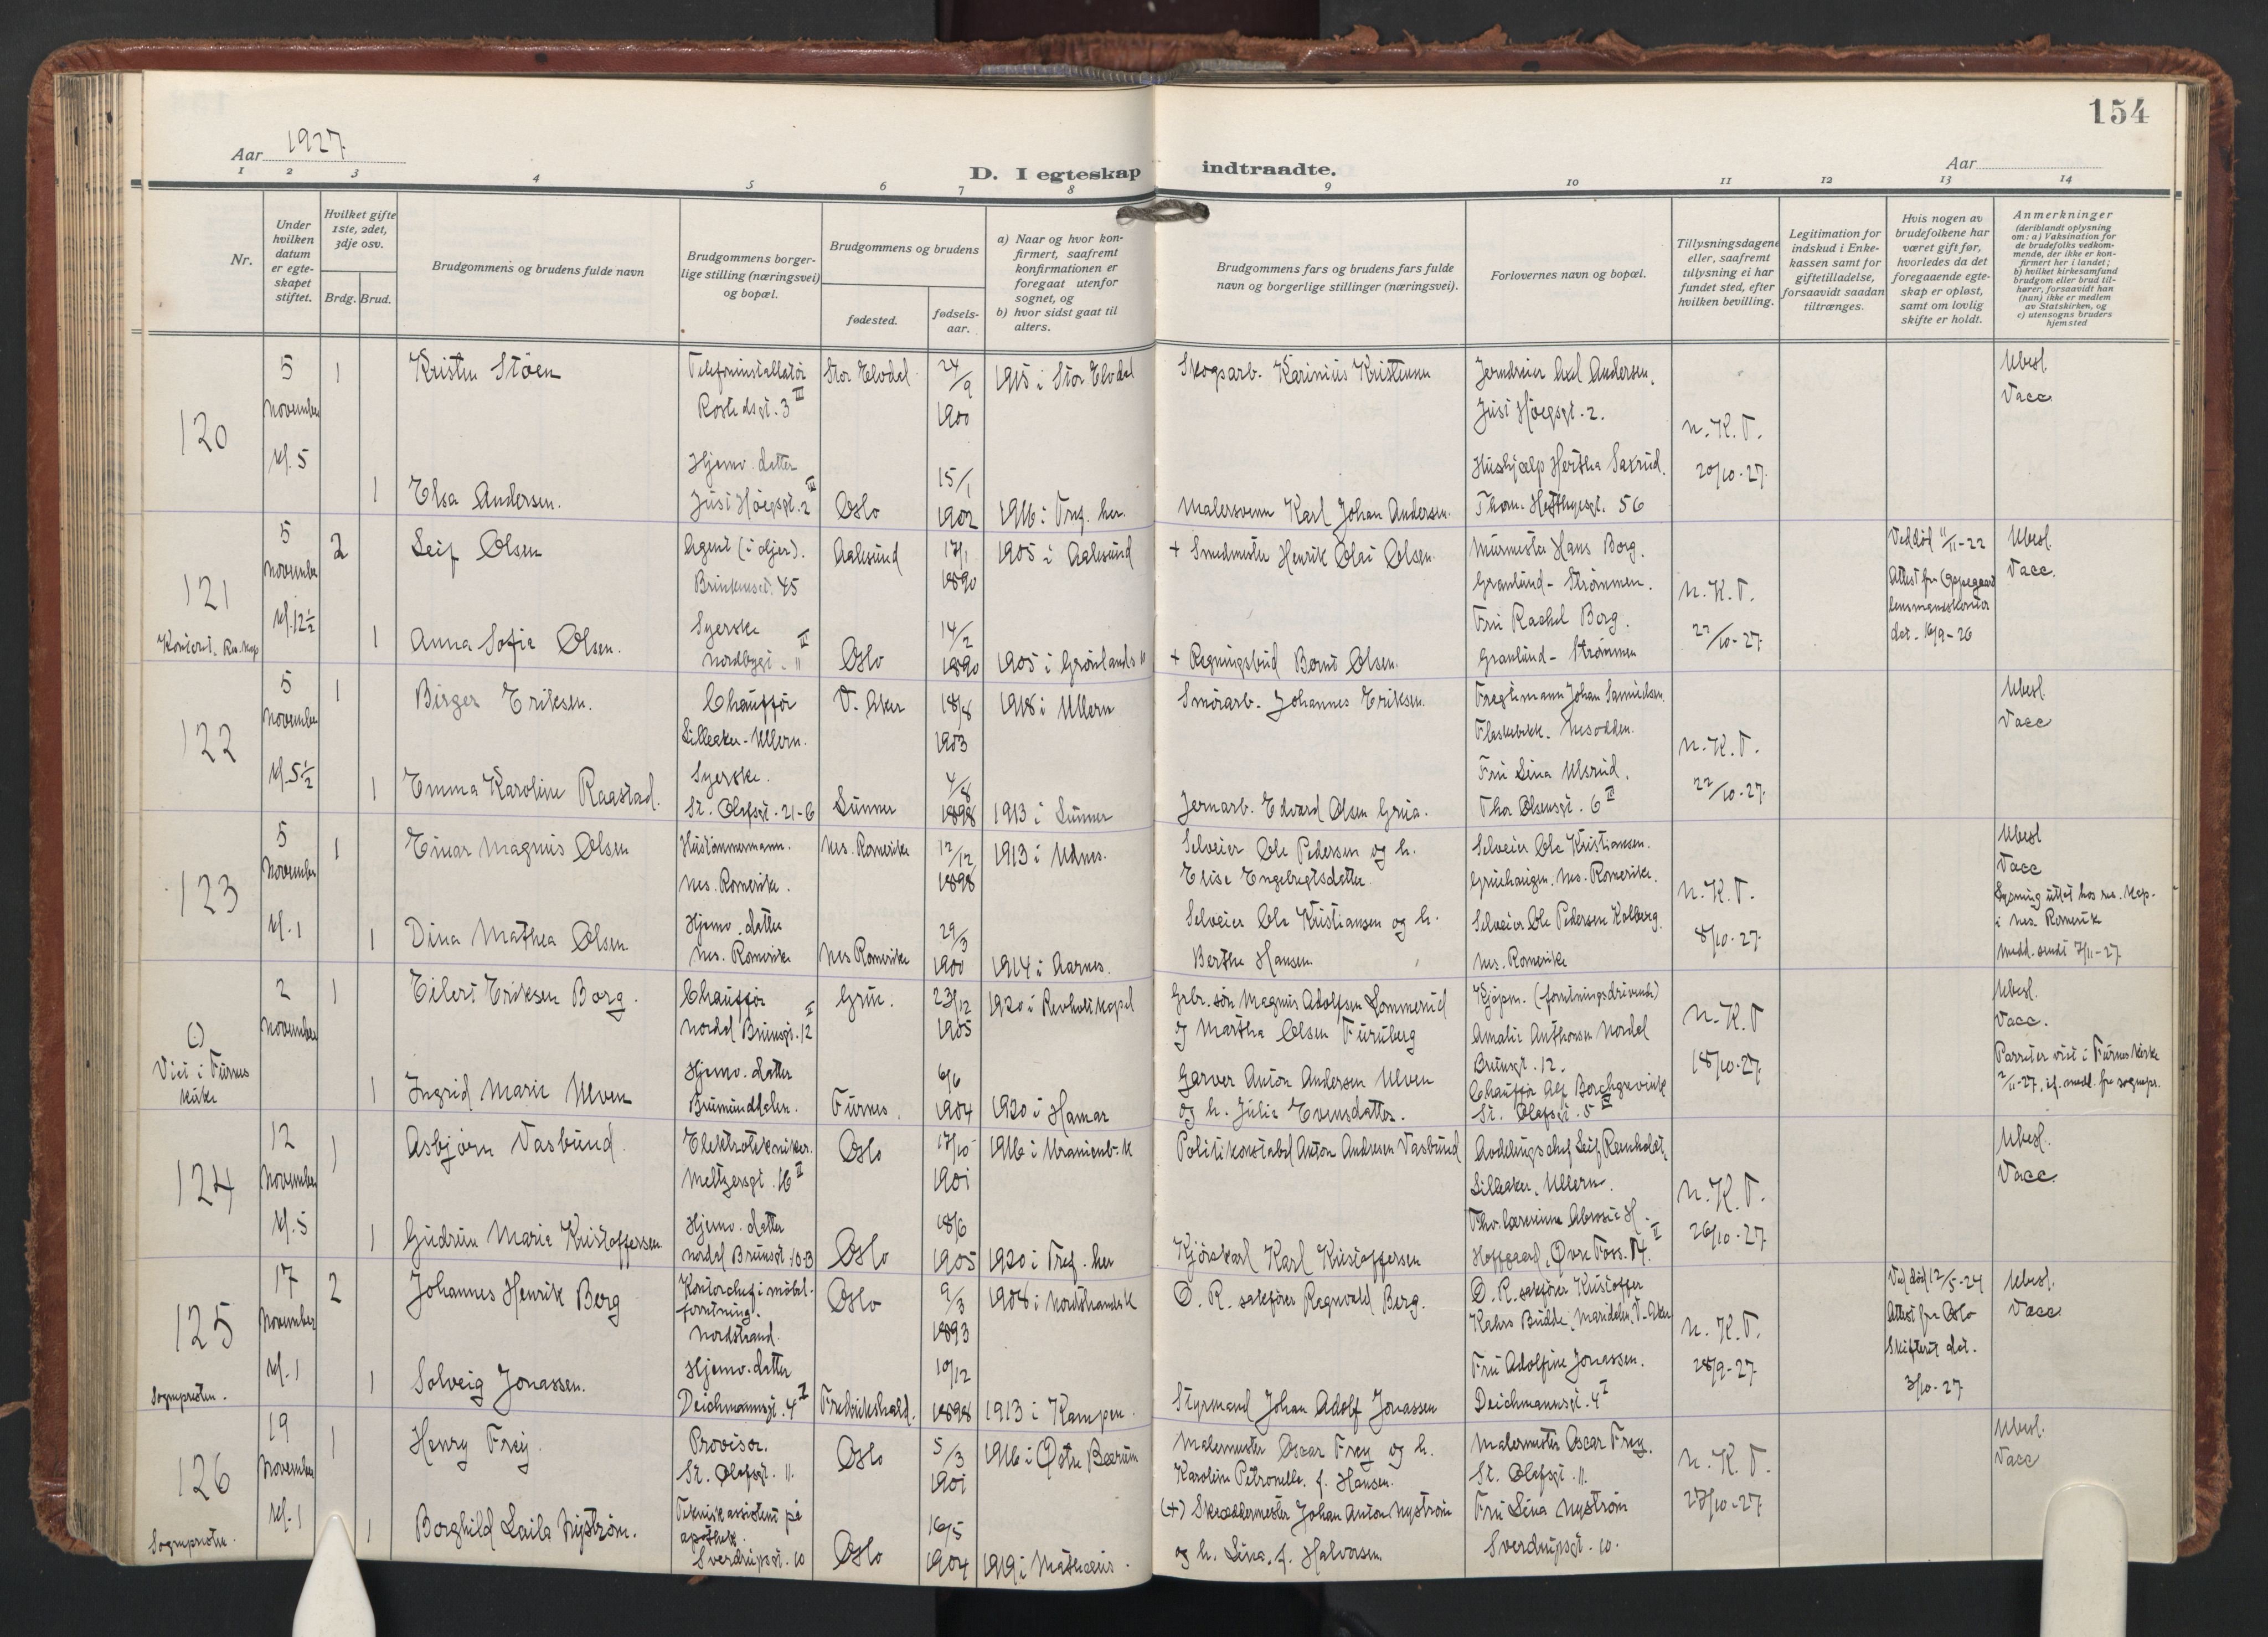 154
Aar 1927
Aar
D. I egteskap indtraadte.
1 2 3 4 5 6 7 8 9 10 11 12 13 14
Nr.
Under hvilken datum er egteskapet stiftet.
Hvilket gifte 1ste, 2det, 3dje osv.
Brdg. Brud.
Brudgommens og brudens fulde navn
Brudgommens borgerlige stilling (næringsvei) og bopæl.
Brudgommens og brudens
fødested.
fødsels-aar.
a) Naar og hvor konfirmert, saafremt konfirmationen er foregaat utenfor sognet, og
b) hvor sidst gaat til alters.
Brudgommens fars og brudens fars fulde navn og borgerlige stillinger (næringsvei).
Forlovernes navn og bopæl.
Tillysningsdagene eller, saafremt tillysning ei har fundet sted, efter hvilken bevilling.
Legitimation for indskud i Enkekassen samt for giftetilladelse, forsaavidt saadan tiltrænges.
Hvis nogen av brudefolkene har været gift før, hvorledes da det foregaaende egteskap er opløst, samt om lovlig skifte er holdt.
Anmerkninger (deriblandt oplysning om: a) Vaksination for de brudefolks vedkommende, der ikke er konfirmert her i landet; b) hvilket kirkesamfund brudgom eller brud tilhører, forsaavidt han (hun) ikke er medlem av Statskirken, og c) utensogns bruders hjemsted
120
5 November Kl. 5
1 Kristen Støen
Telefoninstallatør Rostedsgt. 3 III
Stor Elvdal
24/9 1900
1915 i Stor Elvdal
Skogsarb. Karinius Kristensen
Jerndreier Axel Andersen, Just Høegsgt. 2.
Ubesl. Vacc.
1 Elsa Andersen.
Hjemv. datter Just Høegsgt. 2 III
Oslo
15/1 1902
1916 i Tref. her.
Malersvenn Karl Johan Andersen.
Hushjælp Hertha Saxrud. Thom. Heftyesgt. 56
N.K.T. 20/10-27.
121
5 November Kl. 12½
2 Leif Olsen
Agent (i oljer).
Aalesund
17/1 1890
1905 i Aalesund
+ Smedmester Henrik Olai Olsen.
Murmester Hans Borg. Granlund - Strømmen.
Ved død 11/11-22 Attest fra Oppegaard lensmannskontor dat. 16/9-26
Ubesl. Vacc.
1 Anna Sofie Olsen.
Syerske Nordbygt. 11 II
Oslo
14/2 1890
1905 i Grønlands
+ Regningsbud Bernt Olsen.
Fru Rachel Borg. Granlund - Strømmen
N.K.T. 22/10-27.
122
5 November Kl. 5½
1 Birger Eriksen.
Chauffør Lilleaker - Ullern.
V. Aker
18/8 1903
1918 i Ullern
Smørarb. Johannes Eriksen.
Fragtemann Johan Samuelsen. Flaskebekk. Nesodden.
Ubesl. Vacc
1 Emma Karoline Raastad.
Syerske. St. Olafsgt. 21-6
Lunner
4/8 1898
1913 i Lunner
Jernarb. Edvard Olsen Grua.
Fru Lina Ulsrud, Thor Olsensgt. 6 II
N.K.T. 22/10-27.
123
5 November Kl. 1
1 Einar Magnus Olsen
Hustømmermann. Nes. Romerike.
Nes. Romerike
12/12 1898
1913 i Udnes.
Selveier Ole Pedersen og h. Elise Engebregtsdatter
Selveier Ole Kristiansen. Gruehaugen. Nes. Romerike.
Ubesl Vacc
Lysning uttat hos res. kap. i Nes. Romerik
Medd. sendt 7/11-27.
1 Dina Mathea Olsen
Hjemv. datter Nes. Romerike
Nes Romerike
29/3 1900
1914 i Aarnes.
Selveier Ole Kristiansen og h. Berthe Hansen
Selveier Ole Pedersen Kolberg. Nes. Romerike
N.K.T. 8/10-27.
(-) Viet i Furnes kirke
2 November
1 Eilert Eriksen Borg.
Chauffør Nordal Brunsgt. 12 II
Grue.
23/12 1905
1920 i Revholt kapel
Grbr. søn Magnus Adolfsen Lommerud og Martha Olsen Furuberg
Kjøpm. (forretningsdrivende) Amalie Anthonsen Nordal Brunsgt. 12.
Ubesl. Vacc.
Parret er viet i Furnes kirke 2/11-27, if. medd. fra sognepr.
1 Ingrid Marie Ulven
Hjemv. datter Brumunddalen.
Furnes.
6/6 1904
1920 i Hamar
Garver Anton Andersen Ulven og h. Julie Evensdatter.
Chauffør Alf Borchgrevink St. Olafsgt. 5
N.K.T 18/10-27.
124
12 November Kl. 5
1 Asbjørn Vasbund.
Elektrotekniker. Meltzersgt. 16 II
Oslo
17/10 1901
1916 i Uranienb. k
Politikonstabel Anton Andersen Vasbund
Avdelingschef Leif Reinholdt, Lilleaker, Ullern.
Ubesl. Vacc.
1 Gudrun Marie Kristoffersen
Hjemv. datter Nordal Brunsgt. 10-3
Oslo
18/6 1905
1920 i Tref. her
Kjørekarl Karl Kristoffersen
Hoffgaard, Øvre Foss. 14. II
N.K.T. 26/10-27.
125
Sognepresten.
17 November Kl. 1
2 Johannes Henrik Berg
Kontorchef i møbelforretning. Nordstrand.
Oslo
9/3 1893
1908 i Nordstrand k
O.R. sakfører Ragnvald Berg.
O.R. sakfører Kristoffer Kahrs Budde, Maridalen, V. Aker
Ved død 12/5-24 Attest fra Oslo Skifterett dat. 3/10-27
Ubesl. Vacc
1 Solveig Jonassen.
Hjemv. datter Deichmannsgt. 4 I
Fredrikshald.
10/12 1898
1913 i Kampen.
Styrmand Johan Adolf Jonassen
Fru Adolfine Jonassen. Deichmannsgt. 4 I
N.K.T. 28/9-27
126
Sognepresten.
19 November Kl. 1
1 Henry Frey.
Provisor. St. Olafsgt. 11.
Oslo
5/3 1901
1916 i Østre Bærum
Malermester Oscar Frey og h. Karoline Petronelle. f. Hansen.
Malermester Oscar Frey. St. Olafsgt. 11.
Ubesl. Vacc
1 Borghild Laila Nystrøm.
Teknisk assistent på apothek. Sverdrupsgt. 10
Oslo
16/5 1904
1919 i Mathæus.
(+) Skræddermester Johan Anton Nystrøm og h. Lina, f. Halvorsen.
Fru Lina Nystrøm Sverdrupsgt. 10.
N.K.T. 27/10-27.